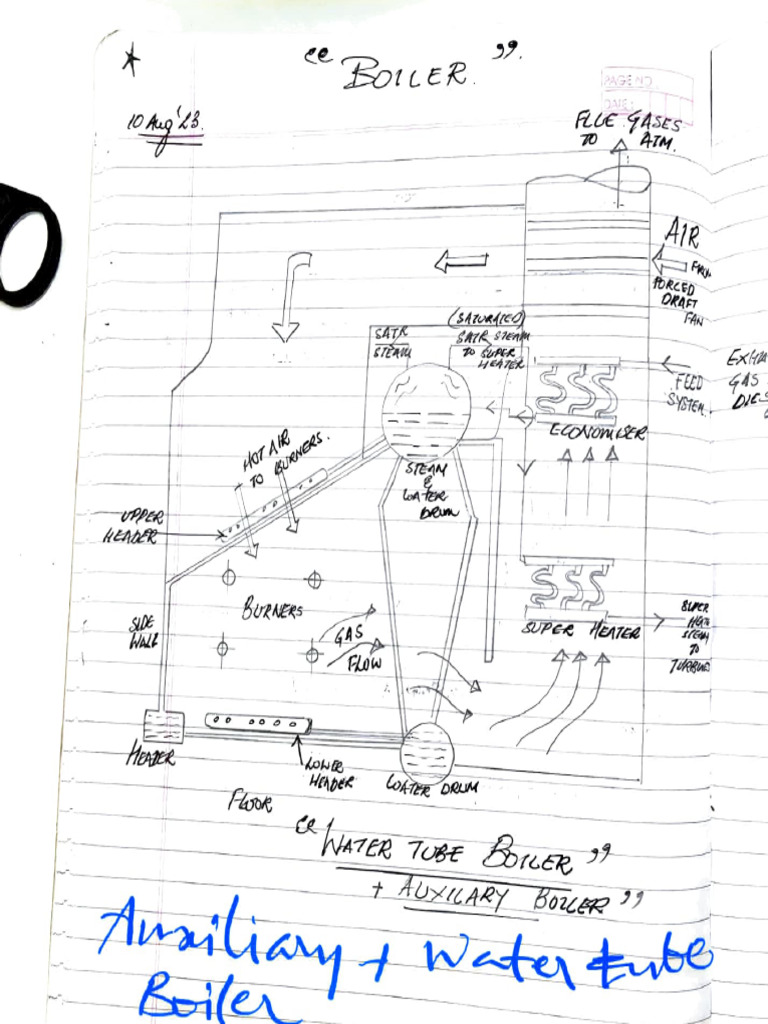 " BOILER. "
PAGE NO.
DATE:
10 Aug '23.
FLUE GASES
TO ATM.
AIR
FROM
FORCED
DRAFT
FAN
(SATURATED)
SATR
STEAM
SATR STEAM
TO SUPER
HEATER
FEED
SYSTEM.
EXHA
GAS
DIES
ECONOMISER
HOT AIR
TO BURNERS.
STEAM
&
WATER
DRUM
UPPER
HEADER
BURNERS
SIDE
WALL
GAS
FLOW
SUPER HEATER
SUPER
HEATE
STEAM
TO
TURBINE
HEADER
LOWER
HEADER
WATER DRUM
FLOOR
" WATER TUBE BOILER "
+ AUXILARY BOILER "
Auxiliary + Water tube
Boiler